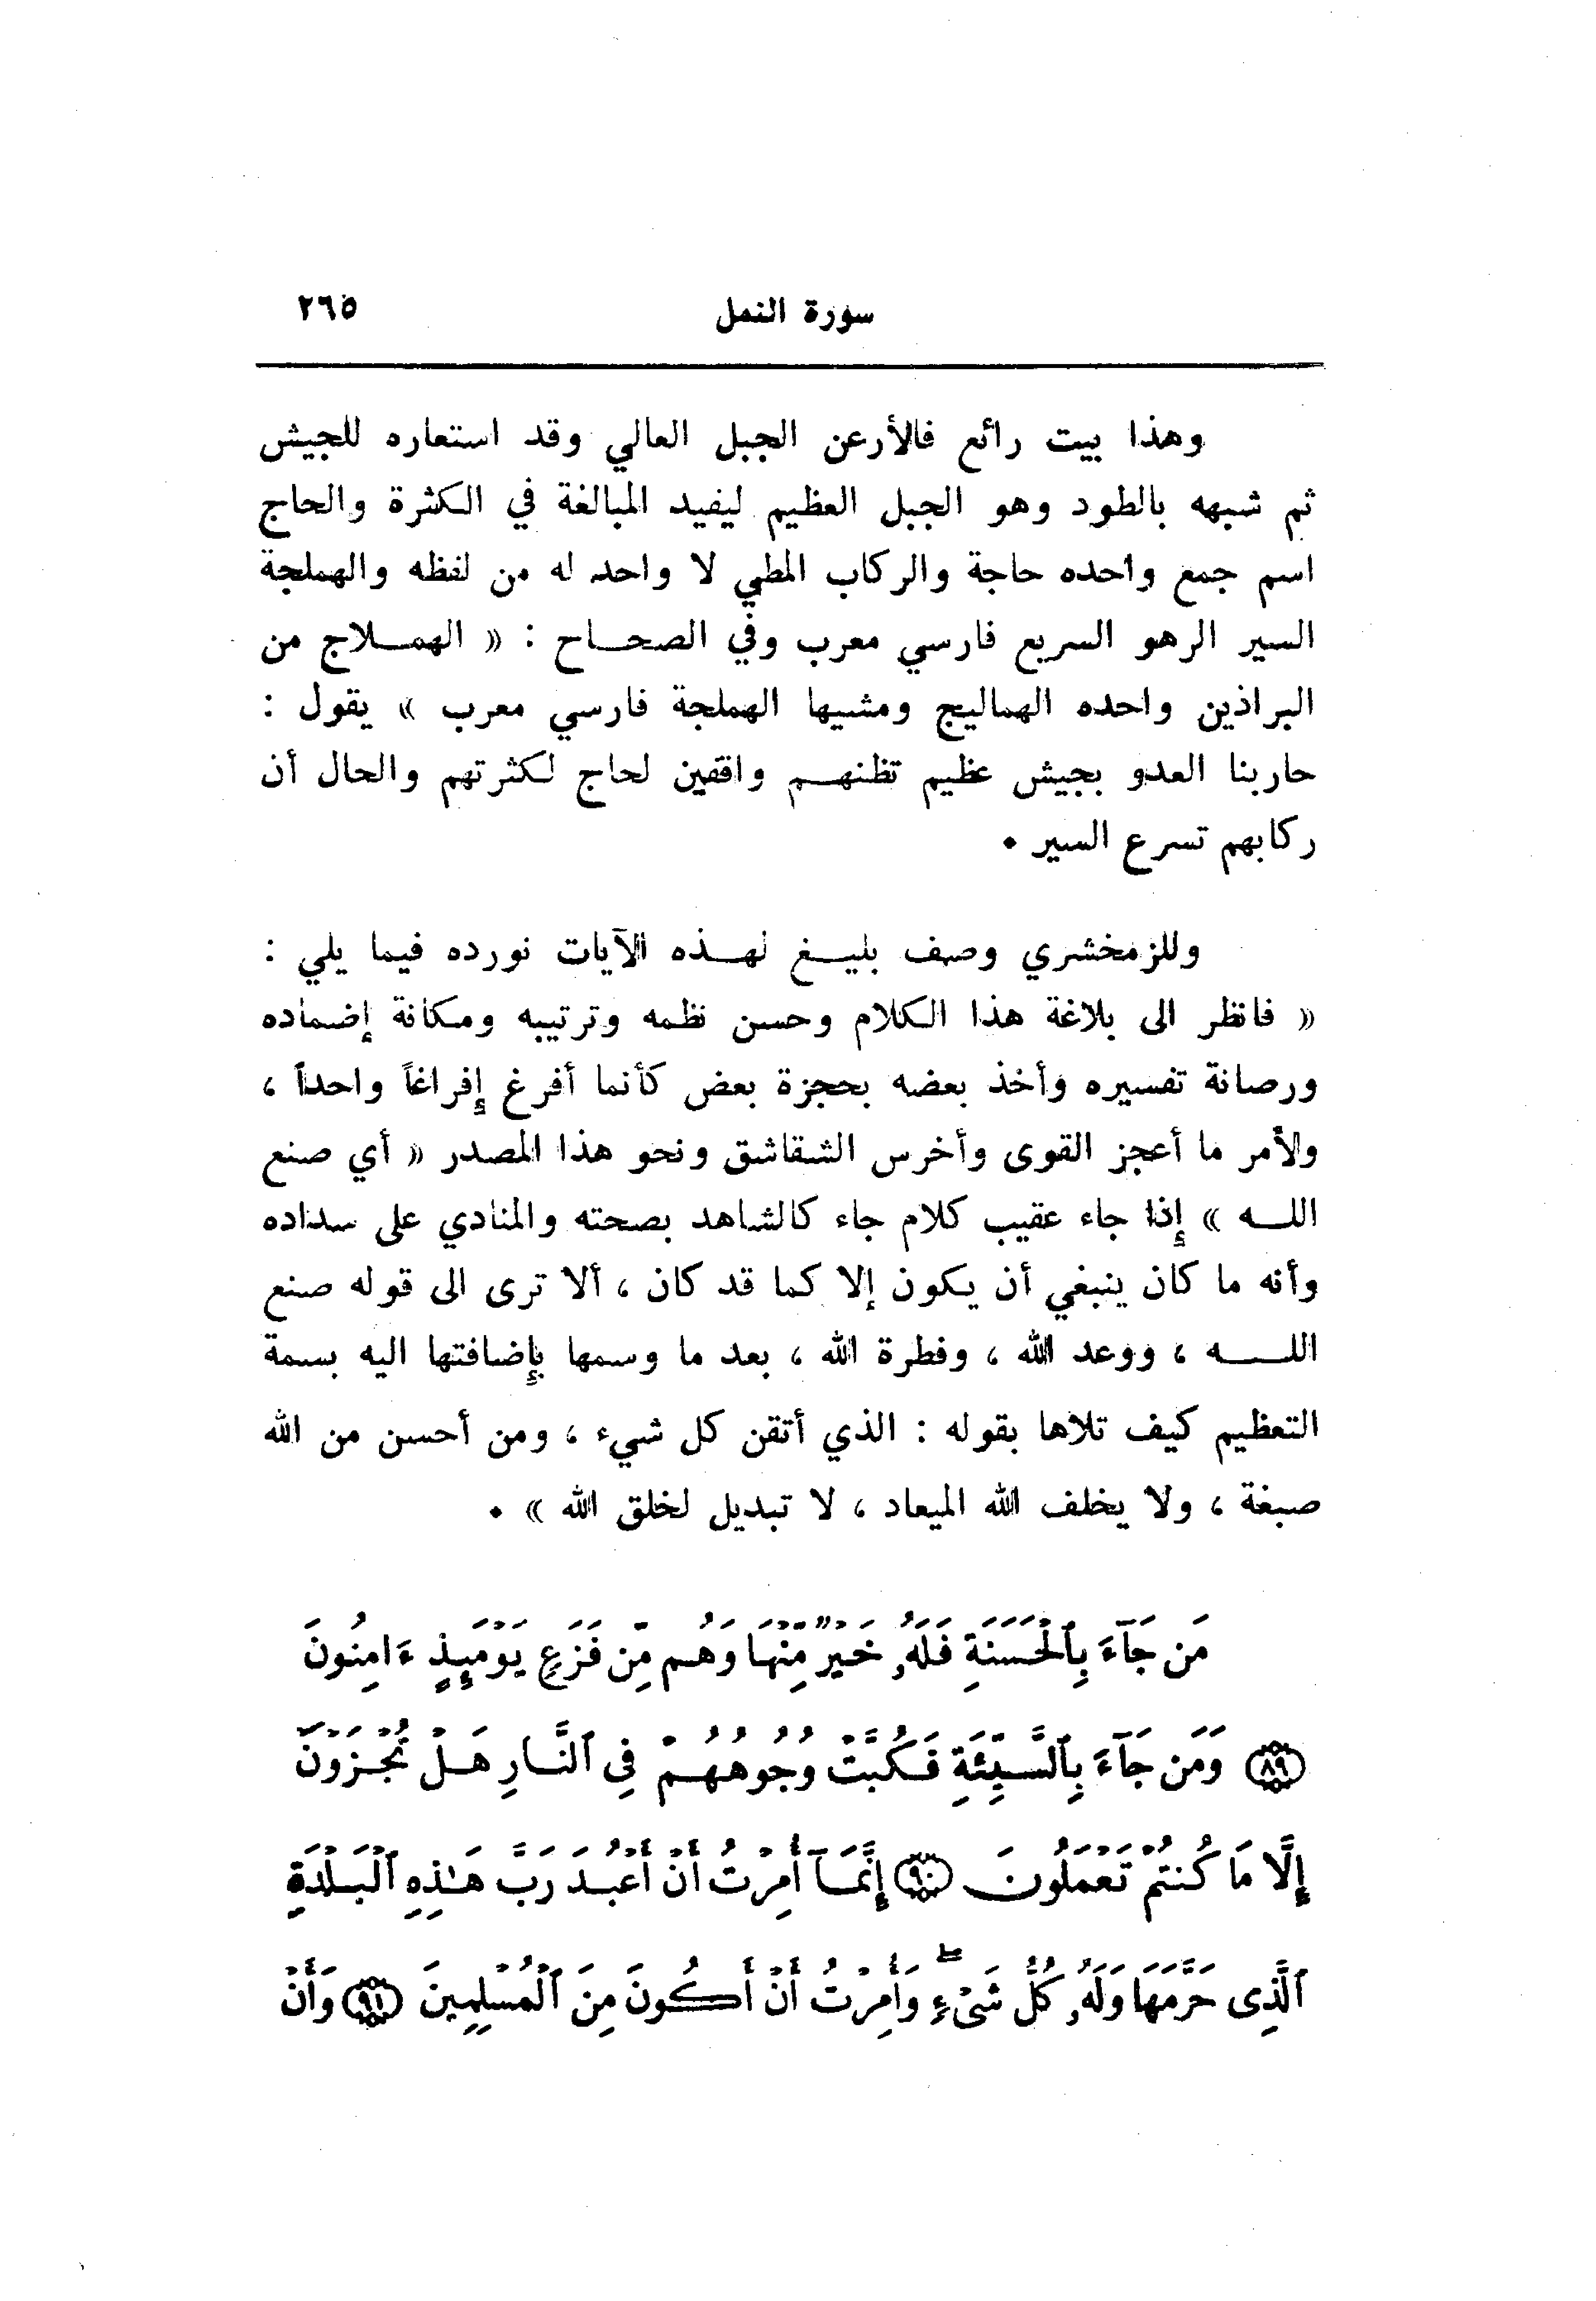 سورة النمل ٢٦٥
وهذا بيت رائع فالأرعن الجبل العالي وقد استعاره للجيش
ثم شبهه بالطود وهو الجبل العظيم ليفيد المبالغة في الكثرة والحاج
اسم جمع واحده حاجة والركاب المطي لا واحد له من لفظه والهملجة
السير الرهو السريع فارسي معرب وفي الصحاح : « الهملاج من
البراذين واحده الهماليج ومشيها الهملجة فارسي معرب » يقول :
حاربنا العدو بجيش عظيم تظنهم واقفين لحاج لكثرتهم والحال أن
ركابهم تسرع السير .
وللزمخشري وصف بليغ لهذه الآيات نورده فيما يلي :
« فانظر الى بلاغة هذا الكلام وحسن نظمه وترتيبه ومكانة إضماده
ورصانة تفسيره وأخذ بعضه بحجزة بعض كأنما أفرغ إفراغاً واحداً ،
ولأمر ما أعجز القوى وأخرس الشقاشق ونحو هذا المصدر « أي صنع
الله » إذا جاء عقيب كلام جاء كالشاهد بصحته والمنادي على سداده
وأنه ما كان ينبغي أن يكون إلا كما قد كان ، ألا ترى الى قوله صنع
الله ، ووعد الله ، وفطرة الله ، بعد ما وسمها بإضافتها اليه بسمة
التعظيم كيف تلاها بقوله : الذي أتقن كل شيء ، ومن أحسن من الله
صبغة ، ولا يخلف الله الميعاد ، لا تبديل لخلق الله » .
مَن جَآءَ بِٱلْحَسَنَةِ فَلَهُۥ خَيْرٌ مِّنْهَا وَهُم مِّن فَزَعٍ يَوْمَئِذٍ ءَامِنُونَ
﴿٨٩﴾ وَمَن جَآءَ بِٱلسَّيِّئَةِ فَكُبَّتْ وُجُوهُهُمْ فِى ٱلنَّارِ هَلْ تُجْزَوْنَ
إِلَّا مَا كُنتُمْ تَعْمَلُونَ ﴿٩٠﴾ إِنَّمَآ أُمِرْتُ أَنْ أَعْبُدَ رَبَّ هَٰذِهِ ٱلْبَلْدَةِ
ٱلَّذِى حَرَّمَهَا وَلَهُۥ كُلُّ شَىْءٍ ۖ وَأُمِرْتُ أَنْ أَكُونَ مِنَ ٱلْمُسْلِمِينَ ﴿٩١﴾ وَأَنْ